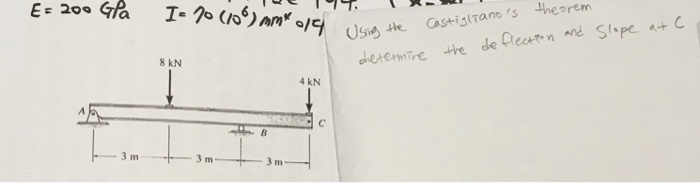 E = 200 GPa I = 70 (10⁶) mm⁴
Using the Castigliano's theorem
determine the deflection and slope at C
8 kN
4 kN
A
C
B
3 m
3 m
3 m